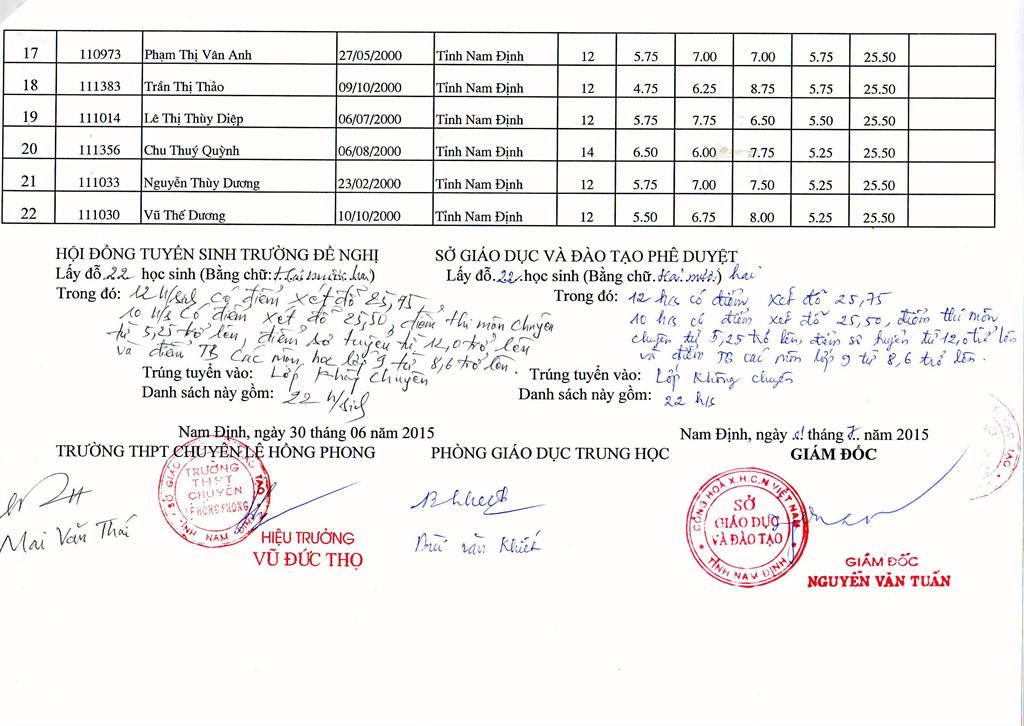 17 110973 Phạm Thị Vân Anh 27/05/2000 Tỉnh Nam Định 12 5.75 7.00 7.00 5.75 25.50
18 111383 Trần Thị Thảo 09/10/2000 Tỉnh Nam Định 12 4.75 6.25 8.75 5.75 25.50
19 111014 Lê Thị Thùy Diệp 06/07/2000 Tỉnh Nam Định 12 5.75 7.75 6.50 5.50 25.50
20 111356 Chu Thuý Quỳnh 06/08/2000 Tỉnh Nam Định 14 6.50 6.00 7.75 5.25 25.50
21 111033 Nguyễn Thùy Dương 23/02/2000 Tỉnh Nam Định 12 5.75 7.00 7.50 5.25 25.50
22 111030 Vũ Thế Dương 10/10/2000 Tỉnh Nam Định 12 5.50 6.75 8.00 5.25 25.50
HỘI ĐỒNG TUYỂN SINH TRƯỜNG ĐỀ NGHỊ
Lấy đỗ 22 học sinh (Bằng chữ: Hai mươi hai)
Trong đó: 12 h/sinh có điểm xét đỗ 25,75
10 h/s có điểm xét đỗ 25,50, điểm thi môn chuyên
từ 5,25 trở lên, điểm sơ tuyển từ 12,0 trở lên
và điểm TB các môn học lớp 9 từ 8,6 trở lên.
Trúng tuyển vào: Lớp không chuyên
Danh sách này gồm: 22 h/sinh
SỞ GIÁO DỤC VÀ ĐÀO TẠO PHÊ DUYỆT
Lấy đỗ 22 học sinh (Bằng chữ Hai mươi) hai
Trong đó: 12 h/s có điểm xét đỗ 25,75
10 h/s có điểm xét đỗ 25,50, điểm thi môn
chuyên từ 5,25 trở lên, điểm sơ tuyển từ 12,0 trở lên
và điểm TB các môn lớp 9 từ 8,6 trở lên.
Trúng tuyển vào: Lớp không chuyên
Danh sách này gồm: 22 h/s
Nam Định, ngày 30 tháng 06 năm 2015
TRƯỜNG THPT CHUYÊN LÊ HỒNG PHONG
Mai Văn Thái
TRƯỜNG
THPT
CHUYÊN
LÊ HỒNG PHONG
TỈNH NAM ĐỊNH
HIỆU TRƯỞNG
VŨ ĐỨC THỌ
PHÒNG GIÁO DỤC TRUNG HỌC
Bùi Văn Khiết
Nam Định, ngày tháng 7 năm 2015
GIÁM ĐỐC
CỘNG HOÀ X.H.C.N VIỆT NAM
SỞ
GIÁO DỤC
VÀ ĐÀO TẠO
TỈNH NAM ĐỊNH
GIÁM ĐỐC
NGUYỄN VĂN TUẤN